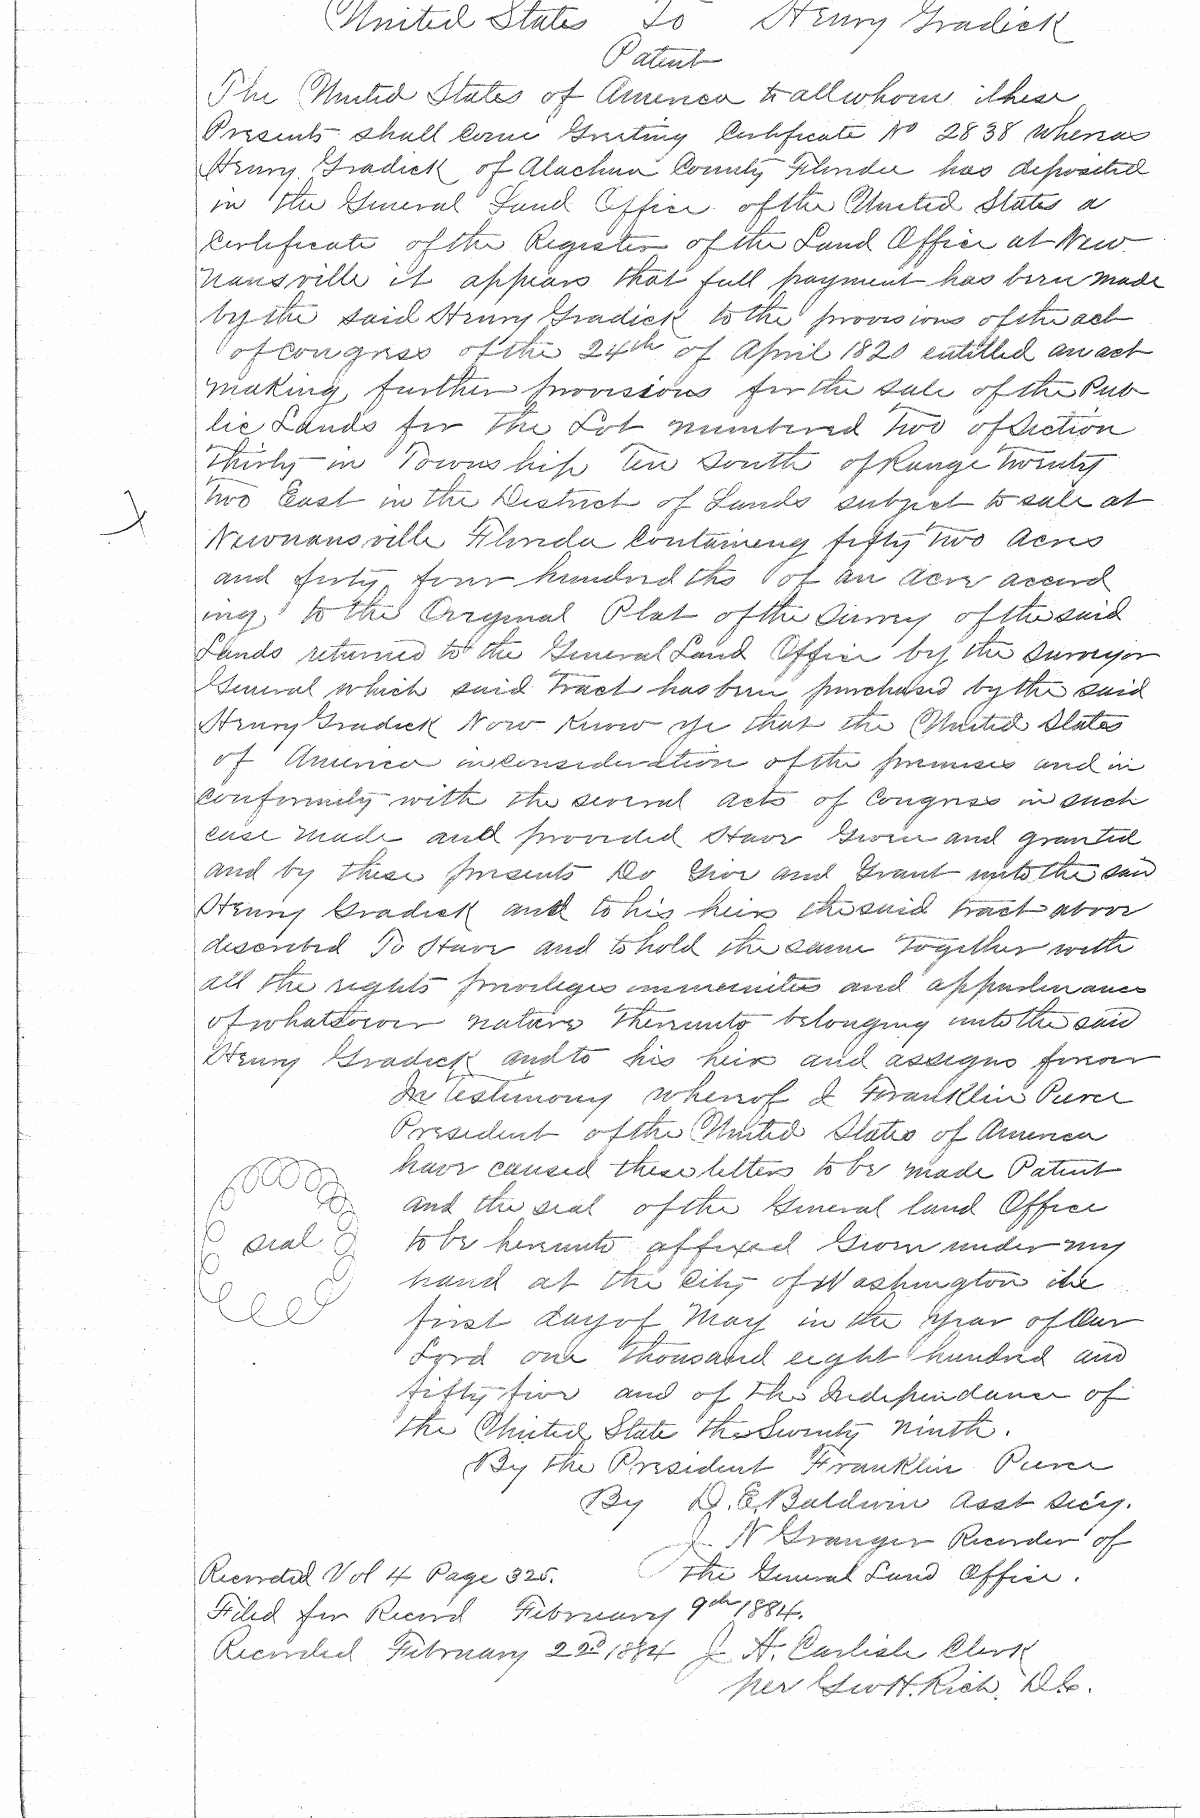 United States To Henry Gradick
Patent
The United States of America to all whom these
Presents shall Come Greeting Certificate No 2838 whereas
Henry Gradick of Alachua County Florida has deposited
in the General Land Office of the United States a
Certificate of the Register of the Land Office at New
nansville it appears that full payment has been made
by the said Henry Gradick to the provisions of the act
of Congress of the 24th of April 1820 entitled an act
making further provisions for the sale of the Pub
lic Lands for the Lot numbered Two of Section
Thirty in Township Ten South of Range Twenty
Two East in the District of Lands subject to sale at
Newnansville Florida Containeng fifty Two Acres
and forty four hundredths of an Acre accord
ing to the Original Plat of the Survey of the said
Lands returned to the General Land Office by the Surveyor
General which said Tract has been purchased by the said
Henry Gradick Now Know ye that the United States
of America in consideration of the premises and in
conformity with the several acts of Congress in such
case made and provided Have Given and granted
and by these presents Do Give and Grant unto the said
Henry Gradick and to his heirs the said tract above
described To Have and to hold the same Together with
all the rights privileges immunities and appurtenances
of whatsoever nature thereunto belonging unto the said
Henry Gradick and to his heirs and assigns forever
In Testimony whereof I Franklin Pierce
President of the United States of America
have caused these letters to be made Patent
and the seal of the General land Office
to be hereunto affixed Given under my
hand at the City of Washington the
first day of May in the Year of Our
Lord one thousand eight hundred and
fifty five and of the Independance of
the United State the Seventy Ninth.
By the President Franklin Pierce
By D. E. Baldwin Asst Sec'y.
seal
J N Granger Recorder of
the General Land Office.
Recorded Vol 4 Page 325.
Filed for Record February 9th 1884.
Recorded February 22d 1884 J. A. Carlisle Clerk
per Geo H. Rich, D.C.